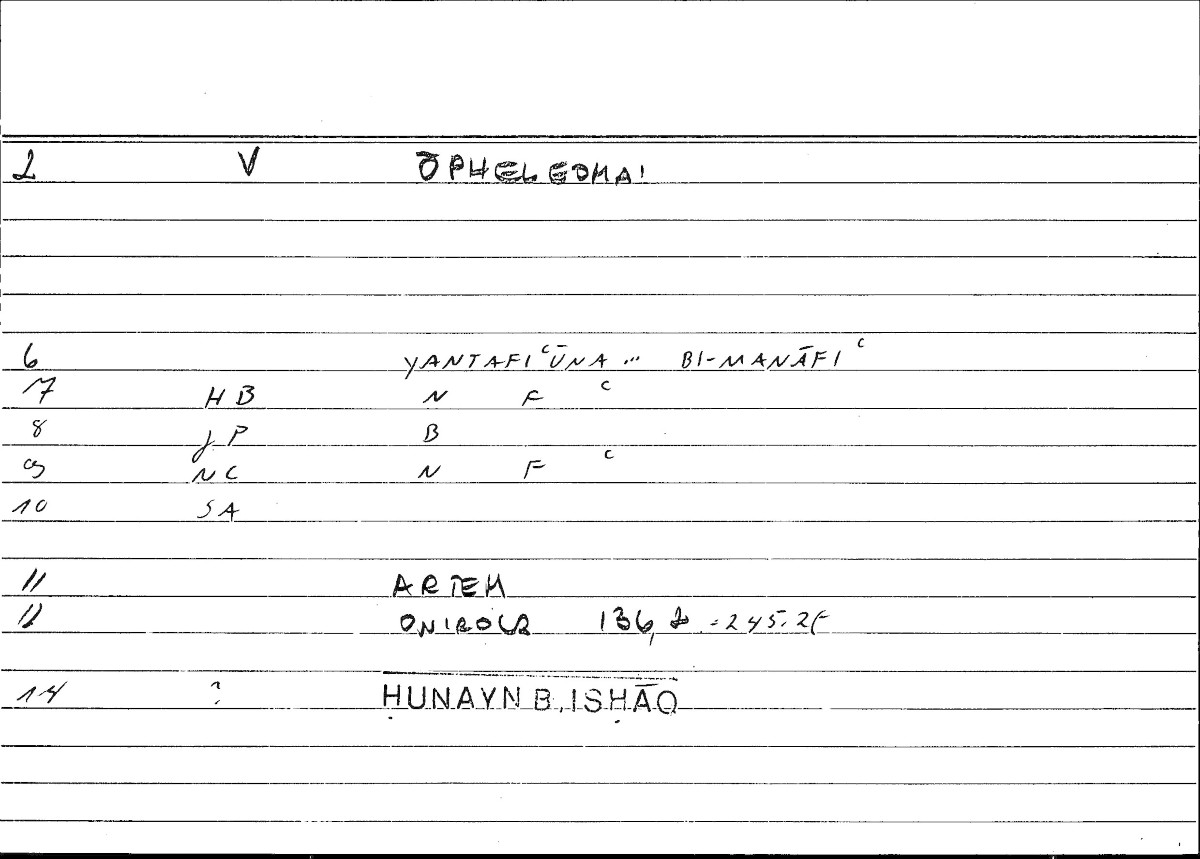 2 V ŌPHELEOMAI
6 YANTAFIʿŪNA ... BI-MANĀFIʿ
7 HB N F ʿ
8 JP B
9 NC N F ʿ
10 SA
11 ARTEM
12 ONIROCR 136, = 245.2f
14 ? ḤUNAYN B. ISḤĀQ